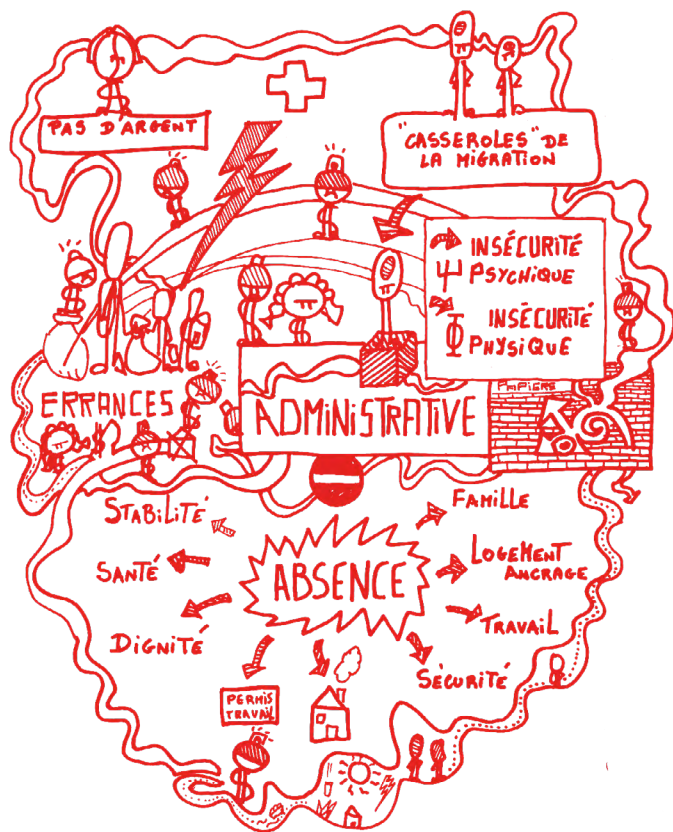 PAS D'ARGENT
"CASSEROLES" DE
LA MIGRATION
INSÉCURITÉ
Ψ PSYCHIQUE
INSÉCURITÉ
Φ PHYSIQUE
ERRANCES
ADMINISTRATIVE
PAPIERS
STABILITÉ
FAMILLE
SANTÉ
ABSENCE
LOGEMENT
ANCRAGE
DIGNITÉ
TRAVAIL
SÉCURITÉ
PERMIS
TRAVAIL